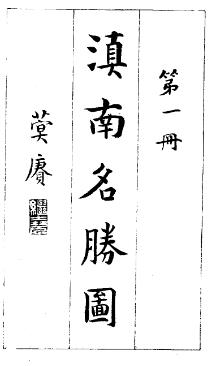 第一冊
滇南名勝圖
蓂賡